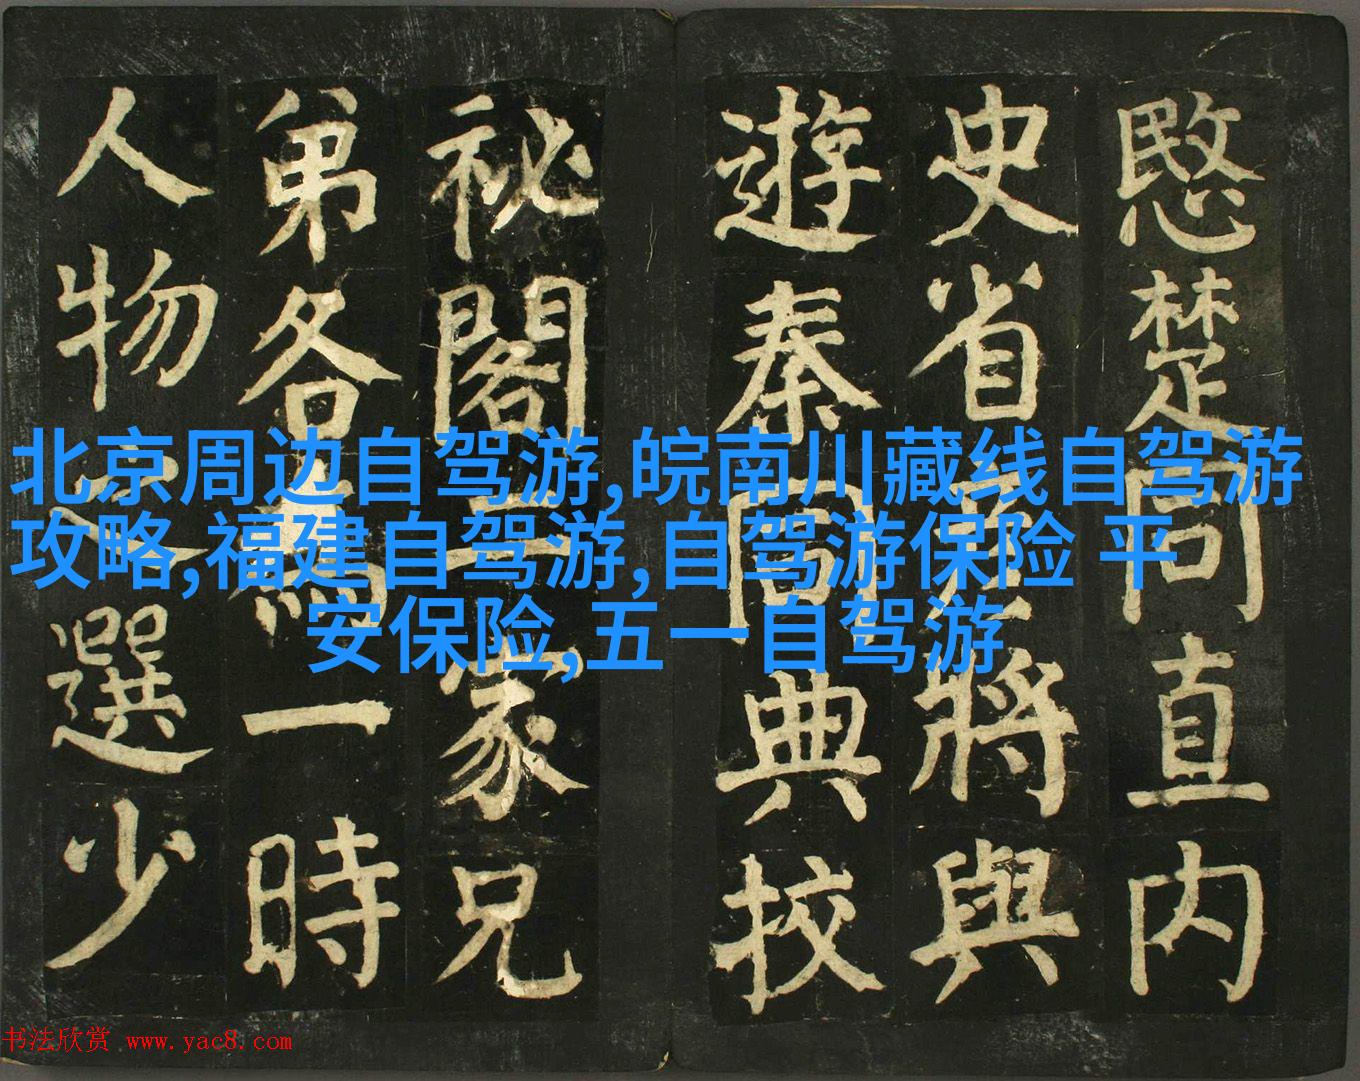 愍楚同直内
史省將與
遊秦同典校
祕閣二家兄
弟各為一時
人物之選少
北京周边自驾游,皖南川藏线自驾游
攻略,福建自驾游,自驾游保险 平
安保险,五一自驾游
书法欣赏 www.yac8.com